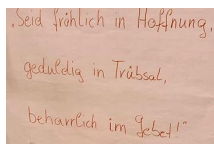 „Seid fröhlich in Hoffnung,
geduldig in Trübsal,
beharrlich im Gebet!"